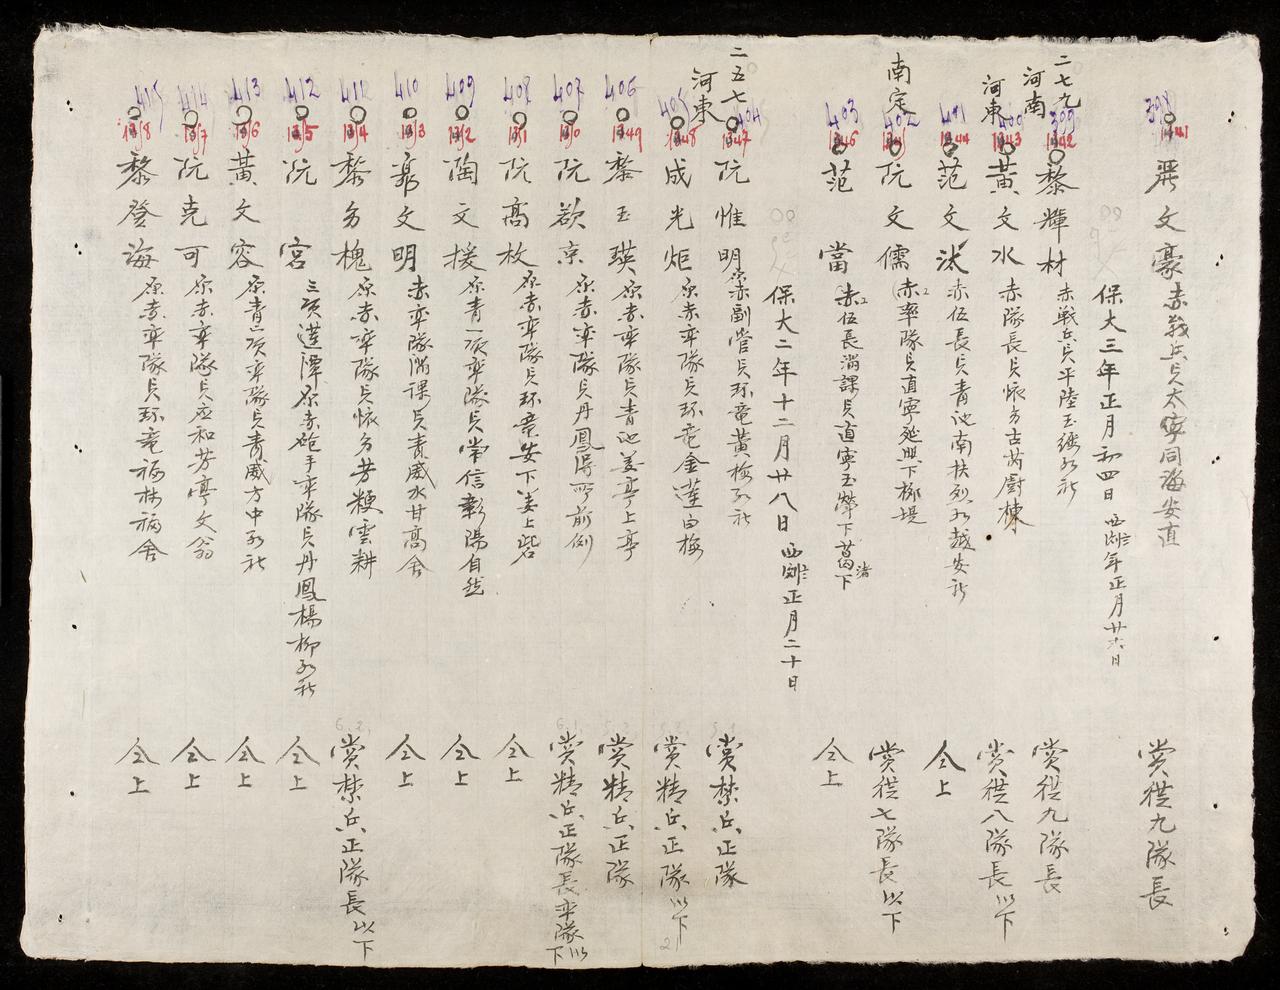 398
1341
嚴文豪赤義兵兵太寧同海安直
賞從九隊長
保大三年正月初四日 西曆年正月廿六日
二七九
河南
399
1342
黎輝材赤戰兵兵平陸玉
賞從九隊長
河東
400
1343
黃文水赤隊長兵懷方古芮廚棟
賞從八隊長以下
401
1344
范文 赤伍長兵青池南扶烈 越安社
仝上
南定
402
阮文儒赤率隊兵直寧延興下椰堤
賞從七隊長以下
403
1346
范當赤伍長滿課兵直寧玉 下葛下
仝上
保大二年十二月廿八日 西曆正月二十日
二五七
河東
404
1347
阮惟明原赤副管兵環龍黃梅 社
賞禁兵正隊
405
1348
成光炬原赤率隊兵環龍金蓮白梅
賞精兵正隊以下
406
1349
黎玉瑛原赤率隊兵青池姜亭上亭
賞精兵正隊
407
阮欲京原赤率隊兵丹鳳得所前例
賞精兵正隊長率隊以下
408
阮高枚原赤率隊兵環龍安下姜上砦
仝上
409
陶文援原青一項率隊兵常信彰陽自然
仝上
410
文明赤率隊滿課兵青威水甘高舍
仝上
411
黎多槐原赤率隊兵懷方芳粳雲耕
賞禁兵正隊長以下
412
阮宮三項蓮潭原赤砲手率隊兵丹鳳楊柳 社
仝上
413
黃文容原青二項率隊兵青威方中 社
仝上
414
阮克可原赤率隊兵應和芳亭文翁
仝上
415
黎登海原赤率隊兵環龍福林福舍
仝上